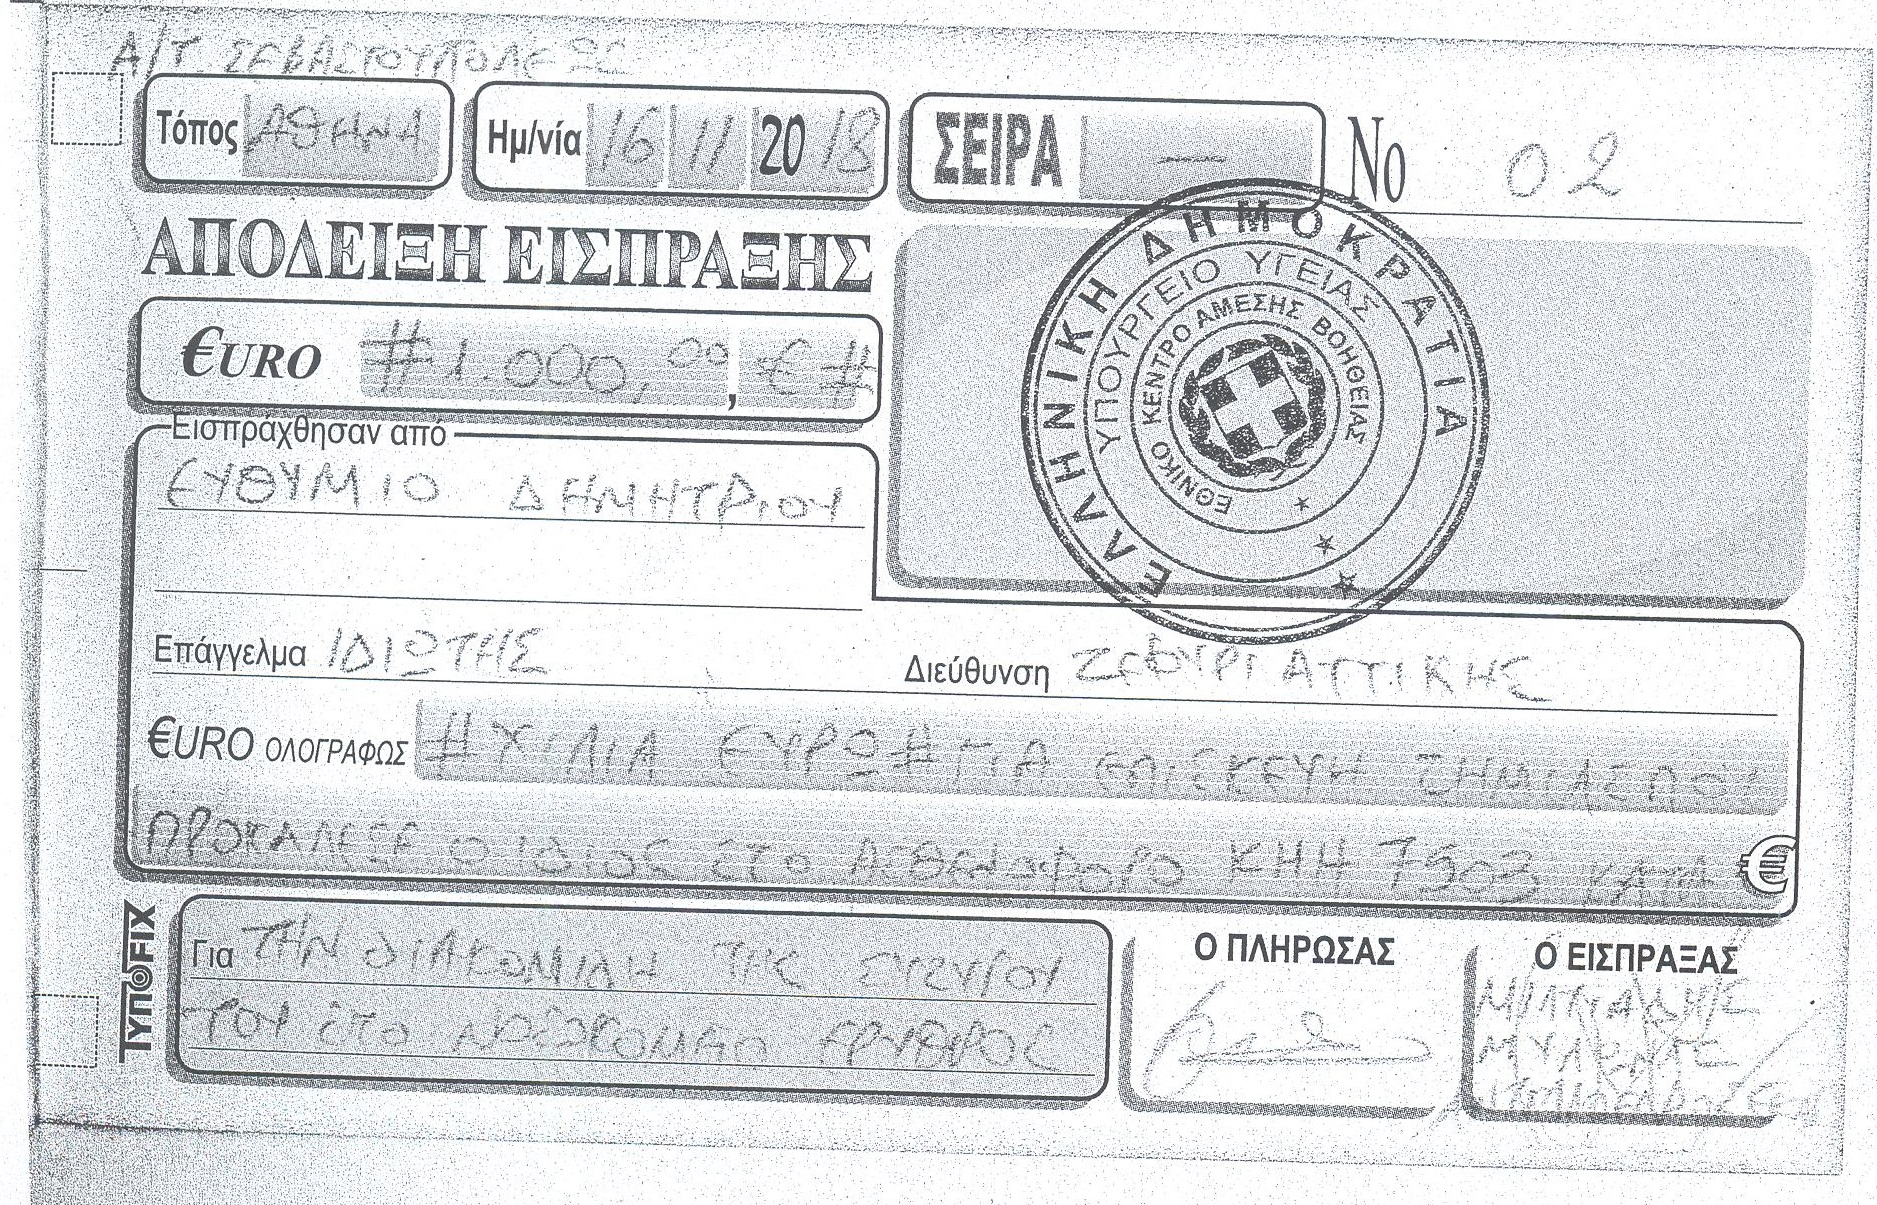 Α/Τ. ΣΕΒΑΣΤΟΥΠΟΛΕΩΣ
Τόπος ΑΘΗΝΑ Ημ/νία 16 11 2018 ΣΕΙΡΑ — Νο 02
ΑΠΟΔΕΙΞΗ ΕΙΣΠΡΑΞΗΣ
€URO #1.000,00, €#
Εισπράχθησαν από
ΕΥΘΥΜΙΟ ΔΗΜΗΤΡΙΟΥ
ΕΛΛΗΝΙΚΗ ΔΗΜΟΚΡΑΤΙΑ
ΥΠΟΥΡΓΕΙΟ ΥΓΕΙΑΣ
ΕΘΝΙΚΟ ΚΕΝΤΡΟ ΑΜΕΣΗΣ ΒΟΗΘΕΙΑΣ
Επάγγελμα ΙΔΙΩΤΗΣ Διεύθυνση ΖΕΦΥΡΙ ΑΤΤΙΚΗΣ
€URO ΟΛΟΓΡΑΦΩΣ # ΧΙΛΙΑ ΕΥΡΩ # ΓΙΑ ΕΠΙΣΚΕΥΗ ΖΗΜΙΑΣ ΠΟΥ
ΠΡΟΚΑΛΕΣΕ Ο ΙΔΙΟΣ ΣΤΟ ΑΣΘΕΝΟΦΟΡΟ ΚΗΗ 7503 ΚΑΤΑ €
Για ΤΗΝ ΔΙΑΚΟΜΙΔΗ ΤΗΣ ΣΥΖΥΓΟΥ
ΤΟΥ ΣΤΟ ΝΟΣΟΚΟΜΕΙΟ ΕΡΥΘΡΟΣ
Ο ΠΛΗΡΩΣΑΣ
Ο ΕΙΣΠΡΑΞΑΣ
ΤΥΠΟFIX